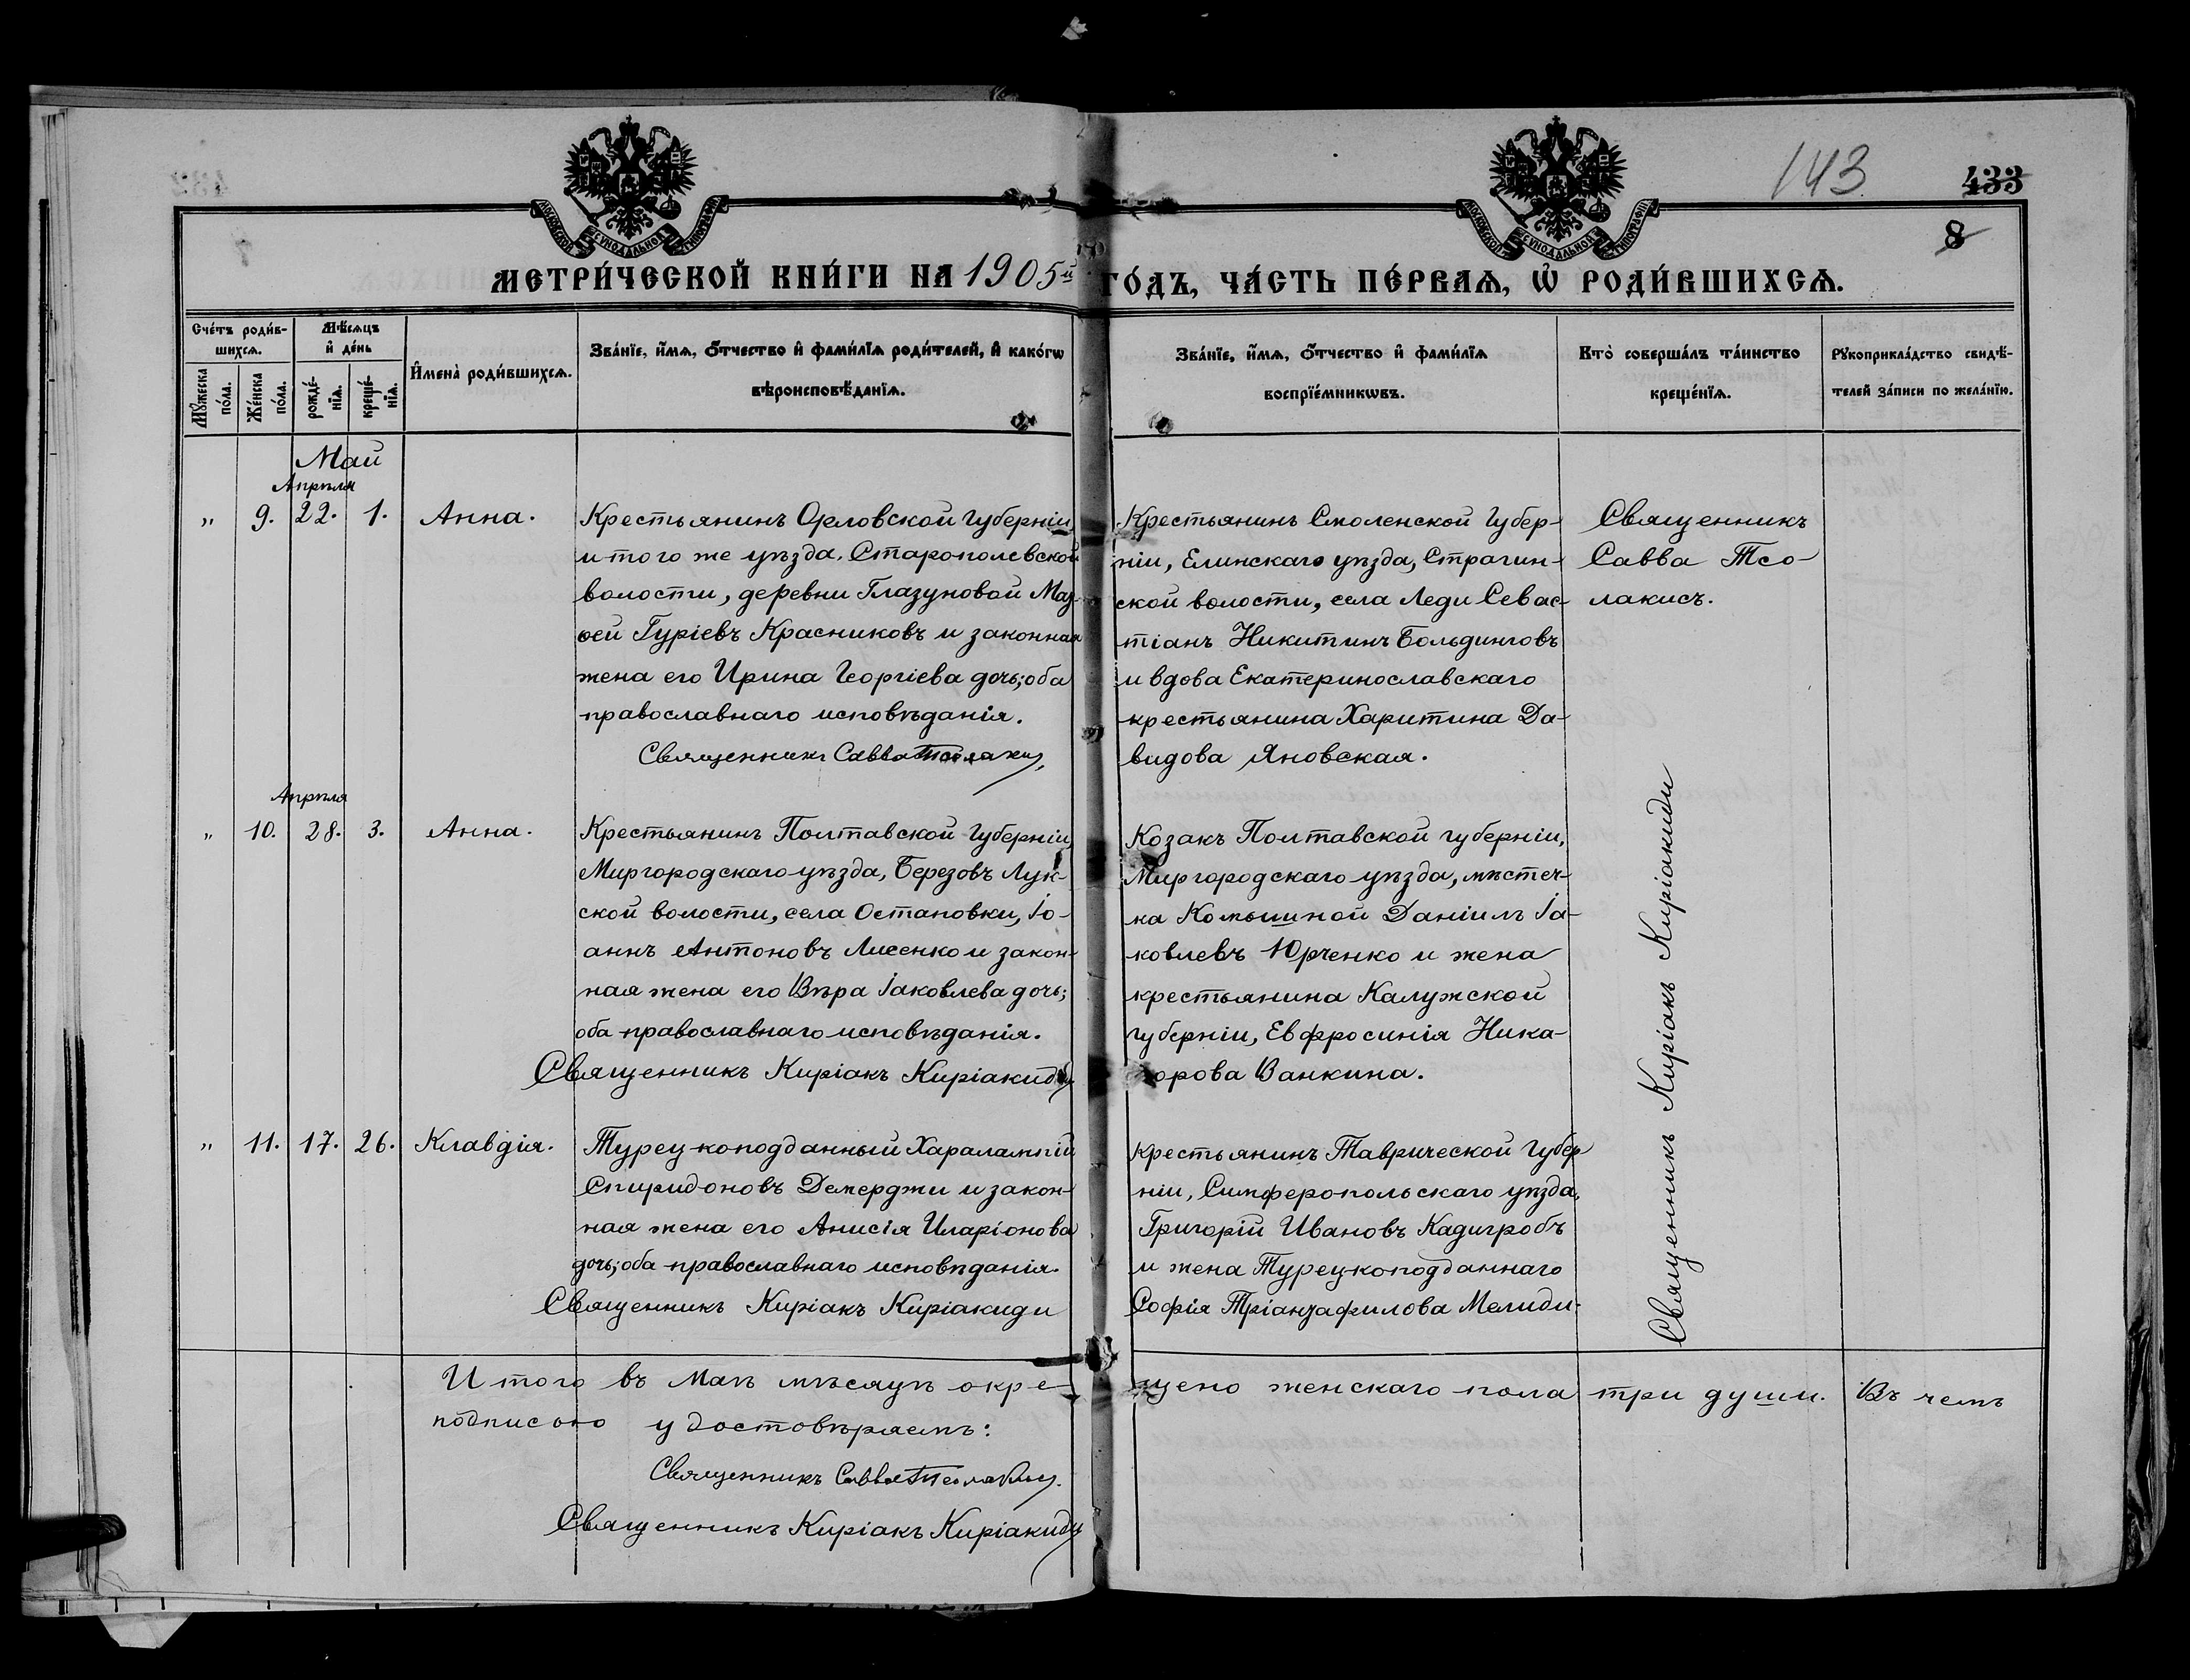 143
433
8
МОСКОВСКОЙ СѴНОДАЛЬНОЙ ТИПОГРАФІИ
МОСКОВСКОЙ СѴНОДАЛЬНОЙ ТИПОГРАФІИ
МЕТРИ́ЧЕСКОЙ КНИ́ГИ НА 1905й ГО́ДЪ, ЧА́СТЬ ПЕ́РВАѦ, Ѡ҆ РОДИ́ВШИХСѦ.
Сче́тъ роди́в-
шихсѧ.
Мꙋ́жеска по́ла.
Же́нска по́ла.
Мѣ́сѧцъ
и҆ де́нь
рожде́-
нїѧ.
креще́-
нїѧ.
И҆мена̀ роди́вшихсѧ.
Зва́нїе, и҆́мѧ, ѻ҆́тчество и҆ фами́лїѧ роди́телей, и҆ како́гѡ
вѣроисповѣ́данїѧ.
Зва́нїе, и҆́мѧ, ѻ҆́тчество и҆ фами́лїѧ
воспрїе́мникѡвъ.
Кто̀ соверша́лъ та́инство
креще́нїѧ.
Рꙋкоприкла́дство свидѣ́-
телей за́писи по жела́нїю.
Май
Апрѣля
„ 9. 22. 1. Анна.
Крестьянинъ Орловской губерніи
и того же уѣзда, Старополевской
волости, деревни Глазуновой Мат-
ѳей Гуріевъ Красниковъ и законная
жена его Ирина Георгіева дочь; оба
православнаго исповѣданія.
Священникъ Савва Тсолакис,
Крестьянинъ Смоленской губер-
ніи, Елинскаго уѣзда, Страгин-
ской волости, села Леди Севас-
тіанъ Никитинъ Больдинговъ
и вдова Екатеринославскаго
крестьянина Харитина Да-
видова Яновская.
Священникъ
Савва Тсо-
лакисъ.
Апрѣля
„ 10. 28. 3. Анна.
Крестьянинъ Полтавской губерніи,
Миргородскаго уѣзда, Березовъ Лук-
ской волости, села Остановки, Іо-
аннъ Антоновъ Лисенко и закон-
ная жена его Вѣра Іаковлева дочь;
оба православнаго исповѣданія.
Священникъ Киріакъ Киріакиди
Козакъ Полтавской губерніи,
Миргородскаго уѣзда, мѣстеч-
ка Комышной Даніилъ Іа-
ковлевъ Юрченко и жена
крестьянина Калужской
губерніи, Евфросинія Ника-
норова Ванкина.
„ 11. 17. 26. Клавдія.
Турецкоподданный Харалампій
Спиридоновъ Демерджи и закон-
ная жена его Анисія Иларіонова
дочь; оба православнаго исповѣданія.
Священникъ Киріакъ Киріакиди
Крестьянинъ Таврической губер
ніи, Симферопольскаго уѣзда,
Григорій Ивановъ Кадигробъ
и жена Турецкоподданнаго
Софія Тріандафилова Мелиди.
Священникъ Киріакъ Киріакиди
Итого въ Маѣ мѣсяцѣ окре-щено женскаго пола три души. Въ чемъ
подписью удостовѣряемъ:
Священникъ Савва Тсолакис.
Священникъ Киріакъ Киріакиди